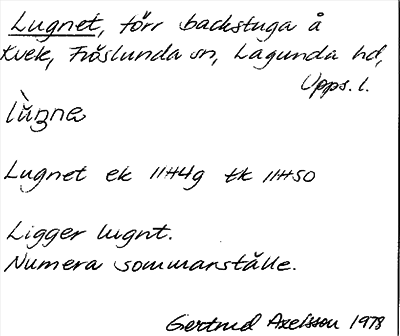 Lugnet, förr backstuga å
Kvek, Fröslunda sn, Lagunda hd,
Upps. l.
lùgne
Lugnet ek 11H4g tk 11H50
Ligger lugnt.
Numera sommarställe.
Gertrud Axelsson 1978